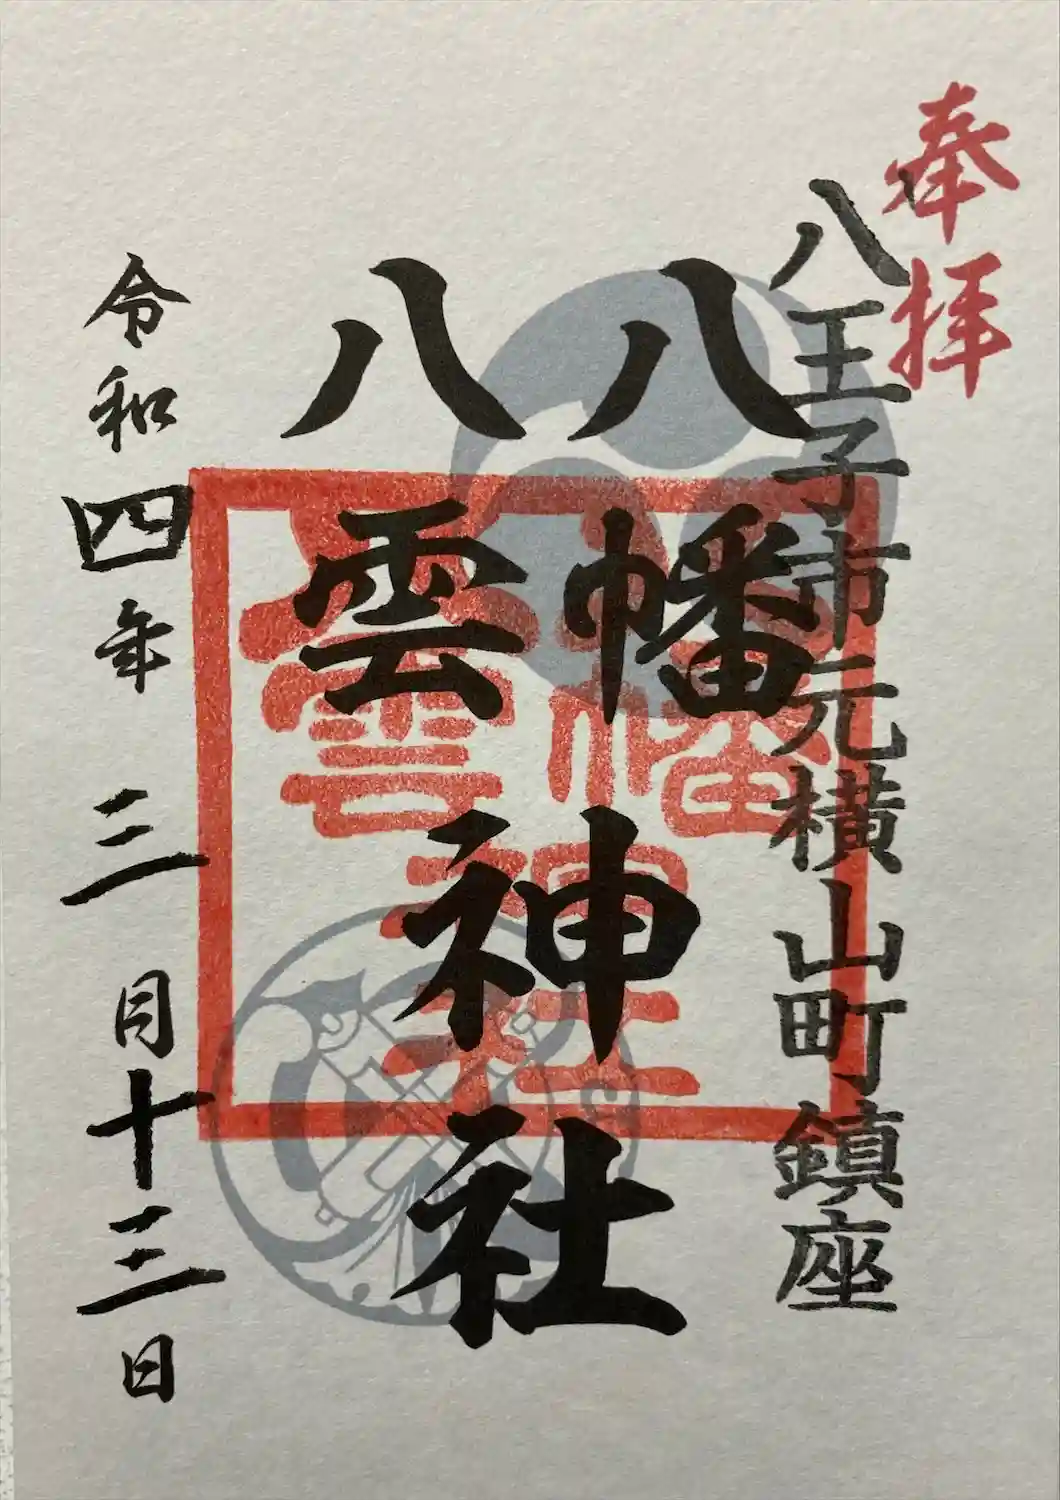 奉拝
八王子市元横山町鎮座
八幡
八雲
神社
令和四年三月十三日
八幡
八雲
神社